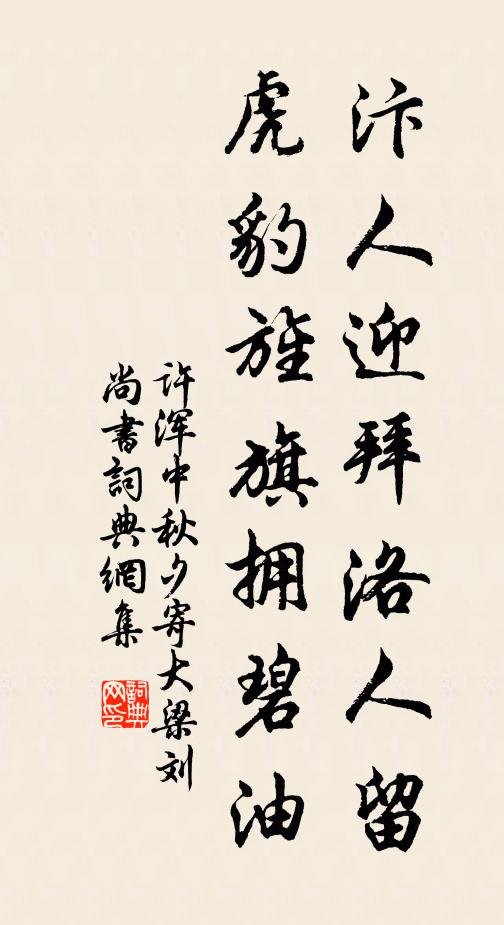 汴人迎拜洛人留
虎豹旌旗拥碧油
许浑中秋夕寄大梁刘
尚書詞典網集
詞典
网印